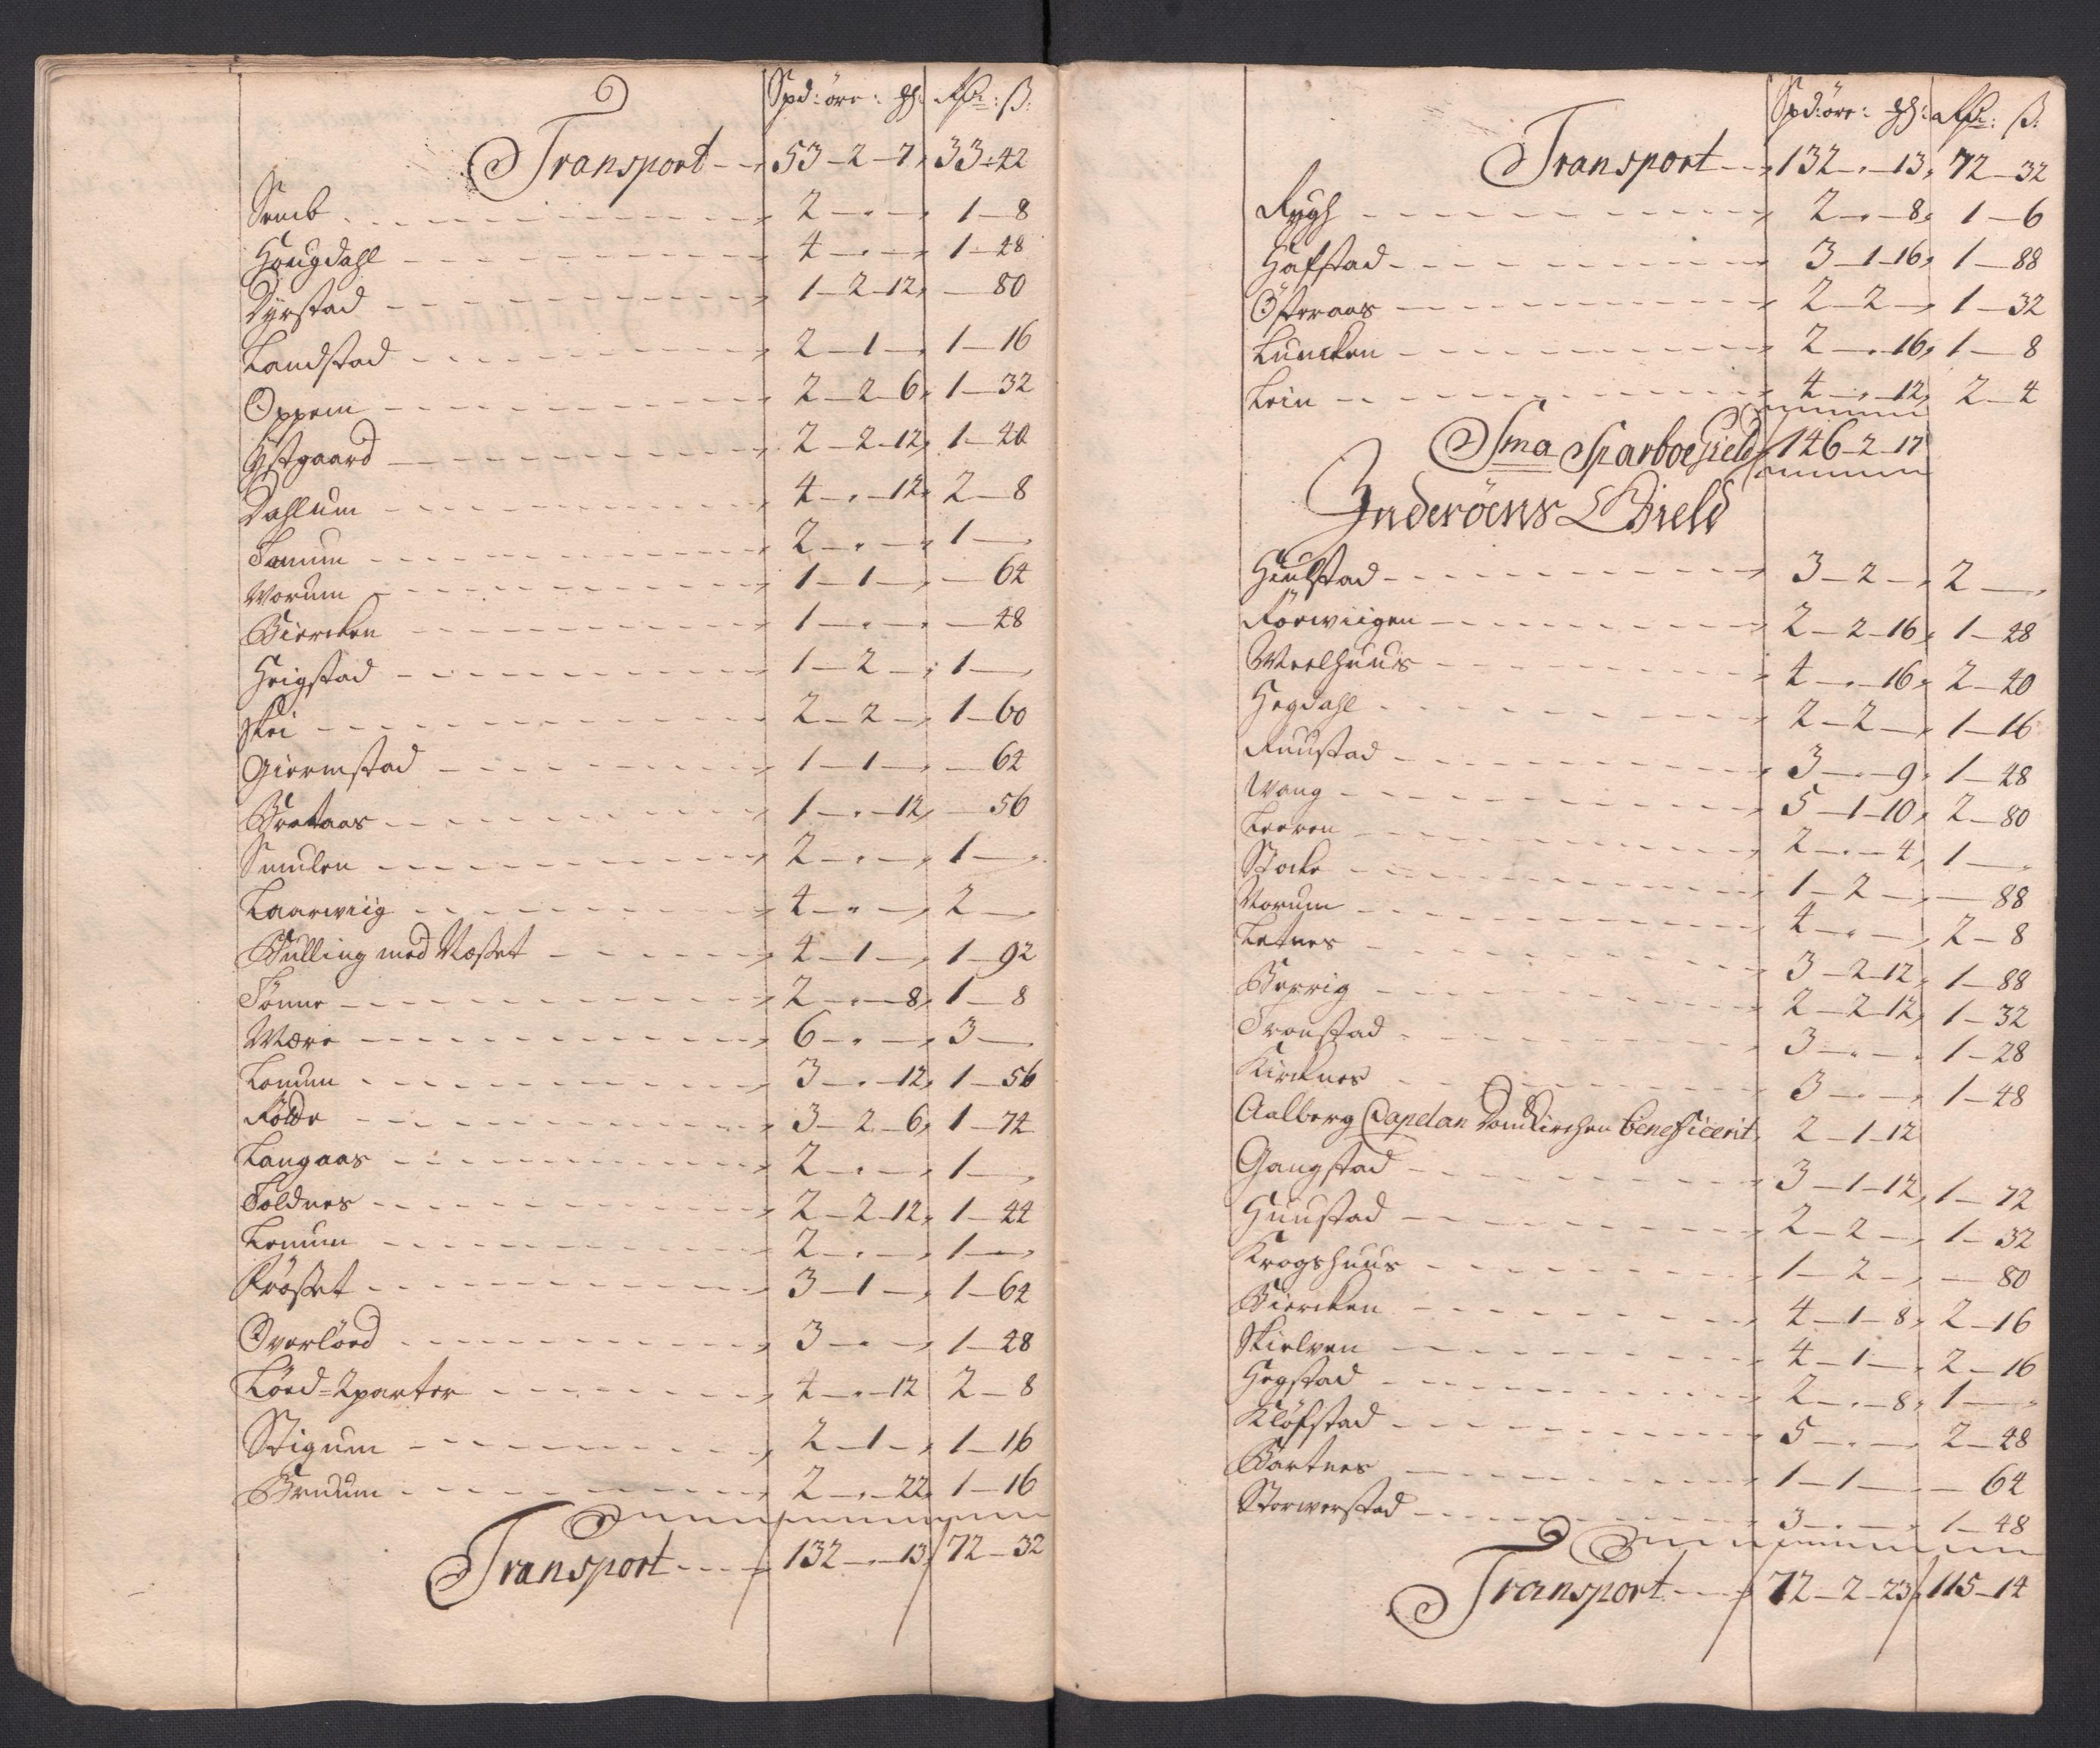 Spd: öre: : Rdr: ß:
Transport -- 53-2-7, 33-42
Semb 2-.-, 1-8
Hougdahl 4-.-, 1-48
Dyrstad 1-2-12, -80
Landstad 2-1-, 1-16
Oppem 2-2-6, 1-32
Østgaard 2-2-12, 1-40
Dahlum 4-.-12, 2-8
Tanum 2-.-, 1-
Worum 1-1-, -64
Biercken 1-.-, -48
Heigstad 1-2-, 1-
Skei 2-2-, 1-60
Giermstad 1-1-, -64
Brataas 1-.-12, -56
Smulen 2-.-, 1-
Laarwiig 4-.-, 2-
Bulling med Næsset 4-1-, 1-92
Tönne 2-.-8, 1-8
Mære 6-.-, 3-
Lomum 3-.-12, 1-56
Følde 3-2-6, 1-74
Langaas 2-.-, 1-
Toldnes 2-2-12, 1-44
Lemum 2-.-, 1-
Frösset 3-1-, 1-64
Overlöed 3-.-, 1-48
Löed-2parter 4-.-12 2-8
Stigum 2-1-, 1-16
Bruum 2-.-22, 1-16
Transport 132-.-13, 72-32
Spd: öre: : Rdr: ß:
Transport -- 132-.-13, 72-32
Rygh 2-.-8, 1-6
Hafstad 3-1-16, 1-88
Österaas 2-2-, 1-32
Luncken 2-.-16, 1-8
Lein 4-.-12, 2-4
Sma Sparboe Gield 146-2-17
Inderöens Gield
Hiulstad 3-2-, 2-
Rörwiigen 2-2-16, 1-48
Weelhuus 4-.-16, 2-40
Hegdahl 2-2-, 1-16
Ruustad 3-.-9, 1-48
Wang 5-1-10, 2-80
Leeren 2-.-4, 1-
Stocke 1-2-, -88
Norum 4-.-, 2-8
Letnes 3-2-12, 1-88
Berrig 2-2-12, 1-32
Tronstad 3-.-. 1-28
Kircknes 3-.-, 1-48
Aalberg Capelan Domkirchen beneficerit, 2-1-12
Gangstad 3-1-12, 1-72
Huustad 2-2-, 1-32
Krogshuus 1-2-, -80
Biercken 4-1-8, 2-16
Skielven 4-1-, 2-16
Hegstad 2-.-8, 1-
Klöfstad 5-.- 2-48
Bartnes 1-1- -64
Storwerstad 3-.-, 1-48
Transport 72-2-23, 115-14